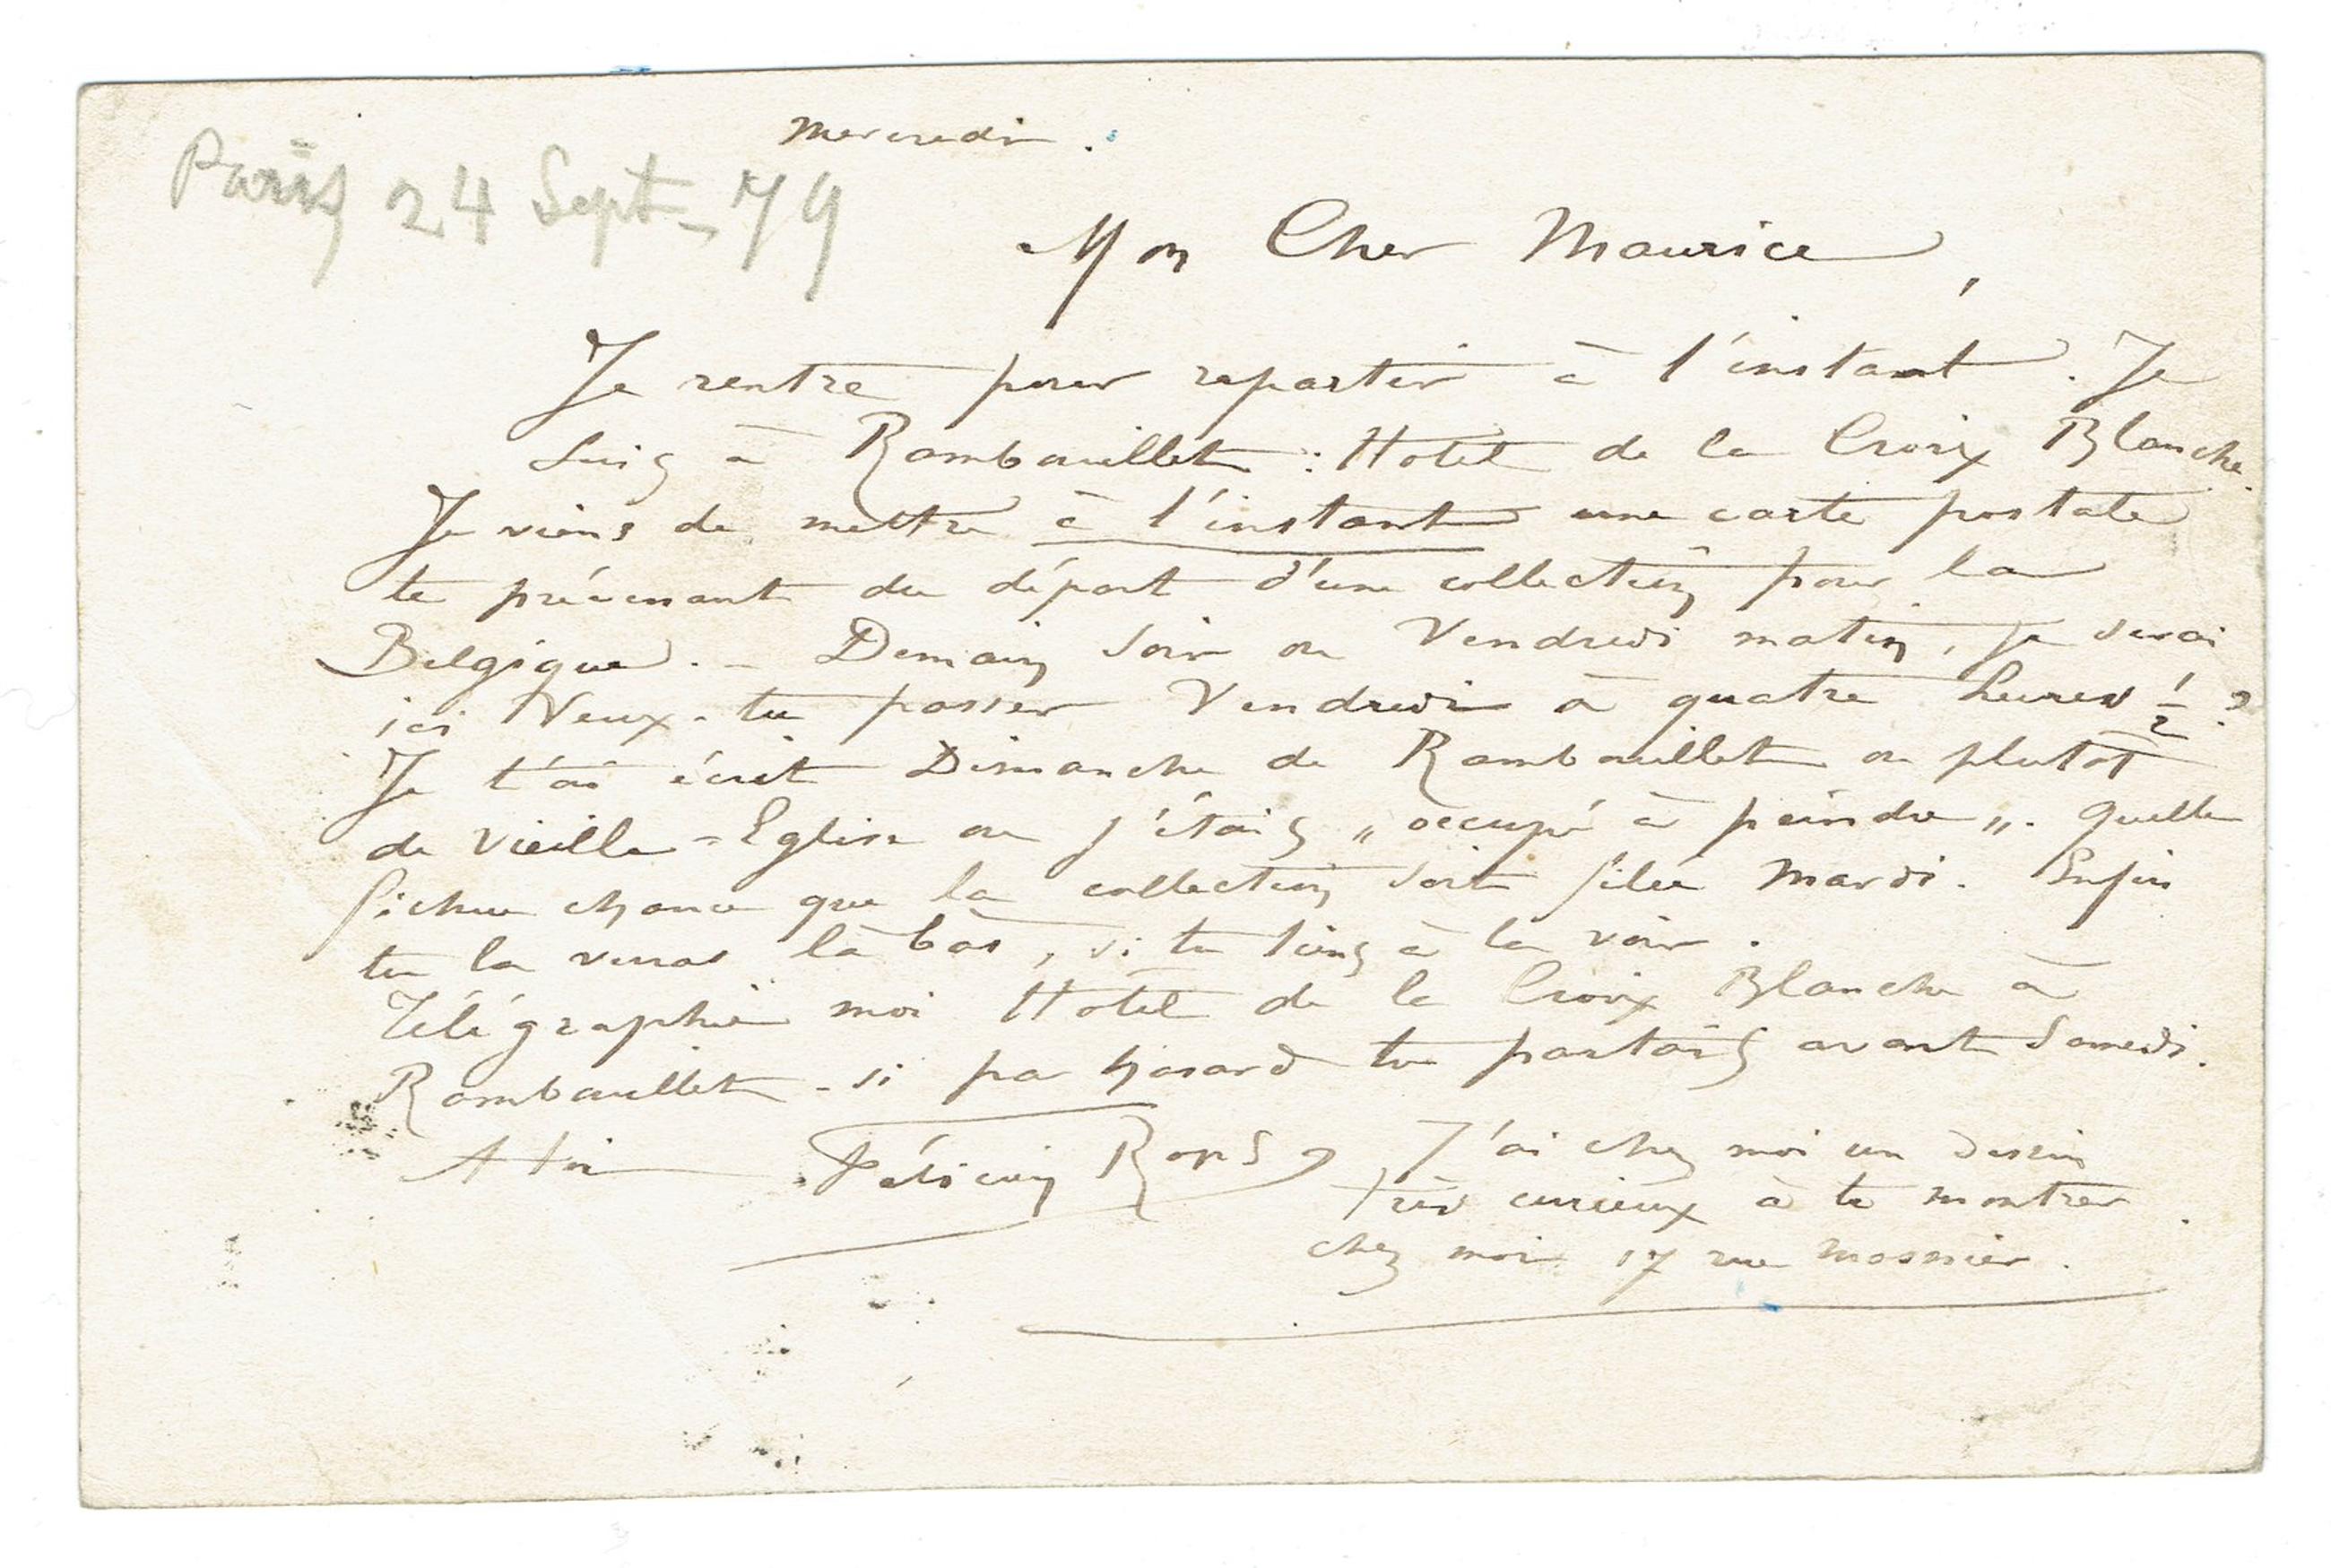 Mercredi.
Paris 24 Sept - 79
Mon Cher Maurice,
Je rentre pour repartir à l'instant. Je
suis à Rambouillet : Hotel de la Croix Blanche.
Je viens de mettre à l'instant une carte postale
te prévenant du départ d'une collection pour la
Belgique. - Demain soir ou Vendredi matin, je serai
ici Veux-tu passer Vendredi à quatre heures 1/2 ?
Je t'ai écrit Dimanche de Rambouillet ou plutôt
de Vieille-Eglise ou j'étais „occupé à peindre„. Quelle
fichue chance que la collection soit filée Mardi. Enfin
tu la verras là bas, si tu tiens à la voir.
Télégraphie moi Hôtel de la Croix Blanche à
Rambouillet - si par hasard tu partais avant Samedi.
A toi Félicien Rops
J'ai chez moi un dessin
très curieux à te montrer.
chez moi 17 rue Mosnier.